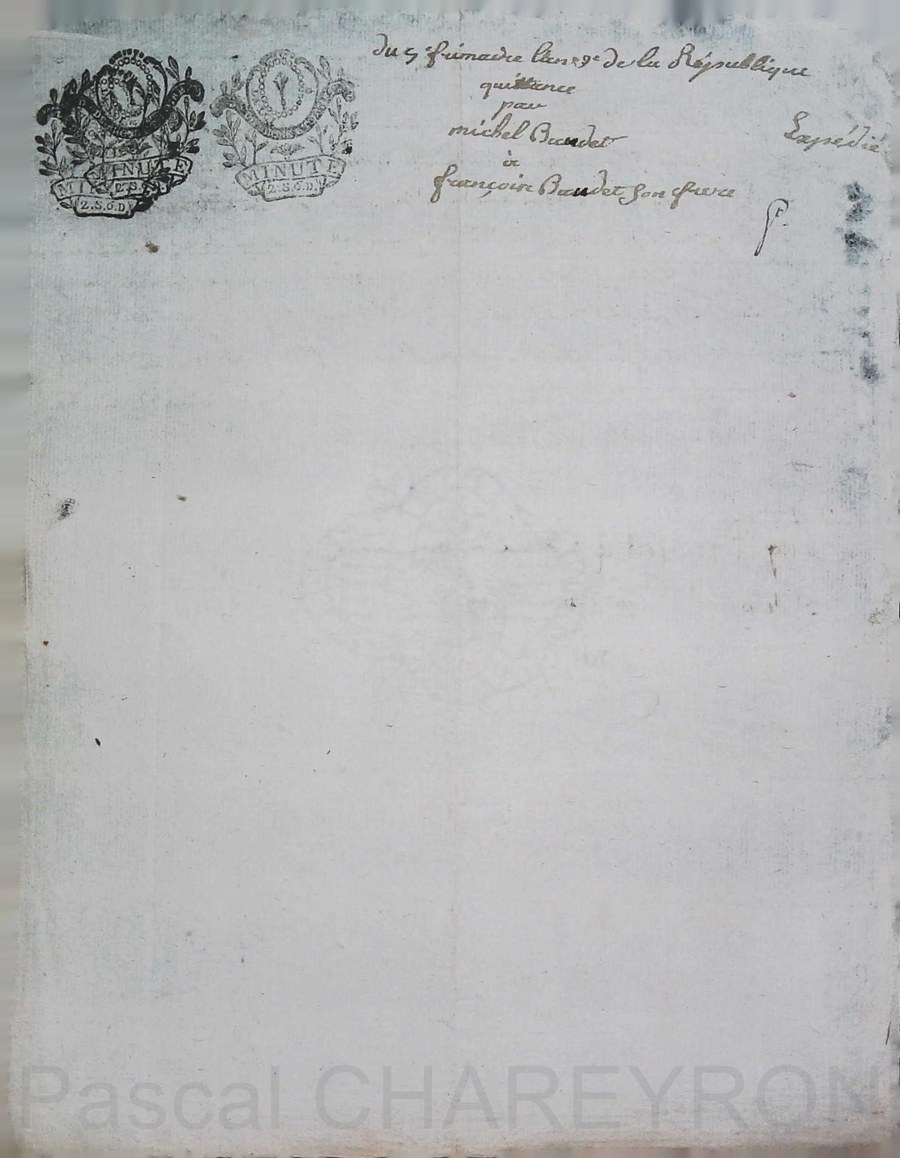 du 5e frimaire l'an 9e de la République
quittance
par
michel Baudet
à
françois Baudet son frere
Expédié
MINUTE
2.S.6.D.
MINUTE
2.S.6.D.
MINUTE
2.S.6.D.
Pascal CHAREYRON